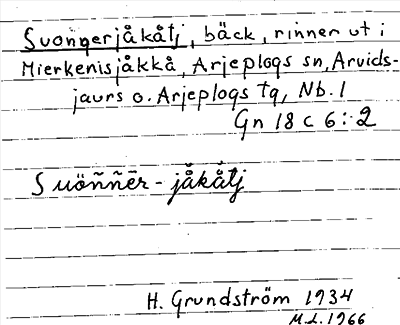 Suonnerjåkåtj, bäck, rinner ut i
Mierkenisjåkkå, Arjeplogs sn, Arvids-
jaurs o. Arjeplogs tg, Nb. l
Gn 18 c 6:2
Suöñ̄ñēr - jåkåtj
H. Grundström 1934
M.L. 1966